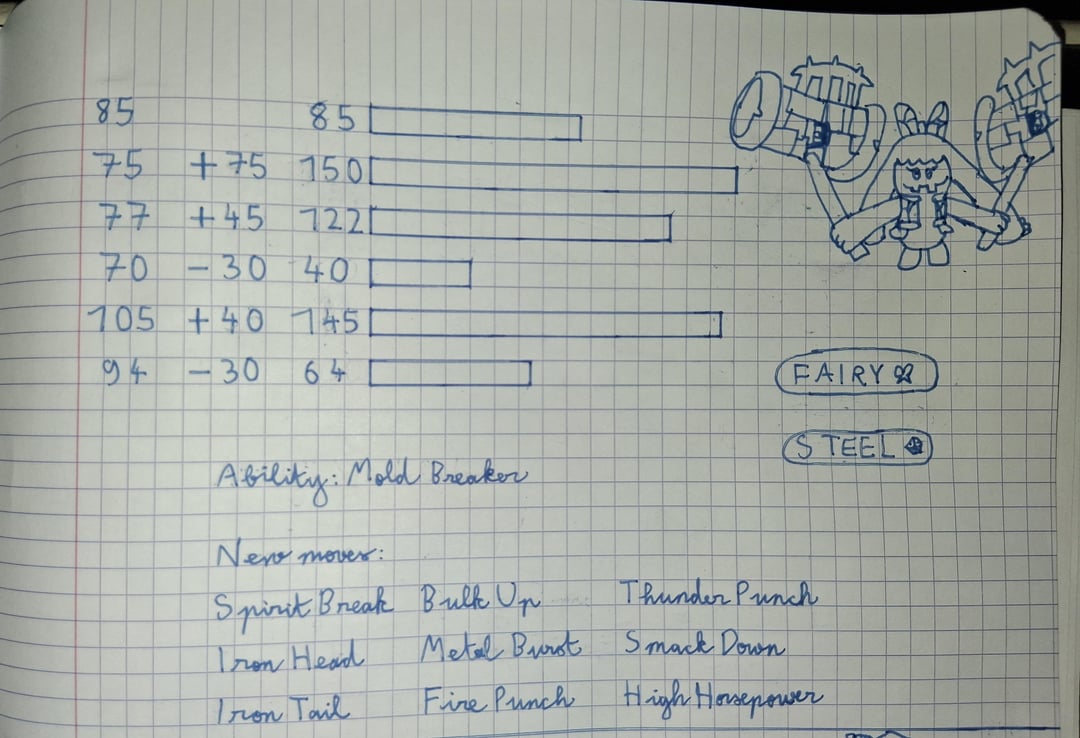 85 85
75 +75 150
77 +45 122
70 -30 40
105 +40 145
94 -30 64
FAIRY
STEEL
Ability: Mold Breaker
New moves:
Spirit Break Bulk Up Thunder Punch
Iron Head Metal Burst Smack Down
Iron Tail Fire Punch High Horsepower